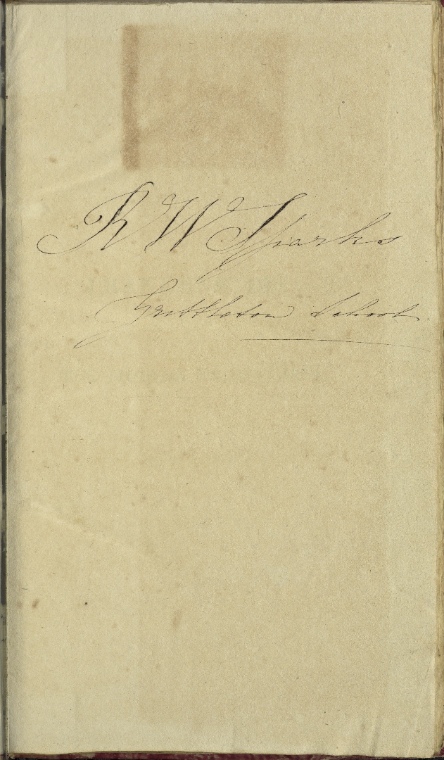 R W Sparks
Grittleton School